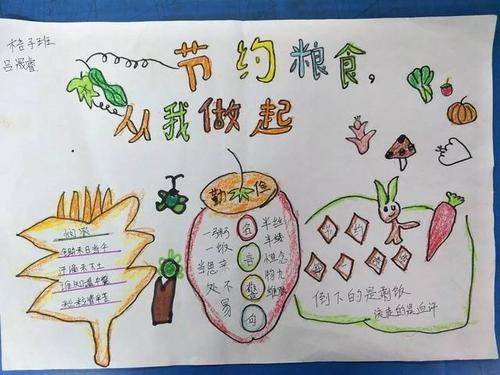 桔子班
节约粮食,
从我做起
悯农
锄禾日当午
汗滴禾下土
谁知盘中餐
粒粒皆辛苦
勤俭
名言警句
一粥一饭
当思来处不易
半丝半缕
恒念物力维艰
节约
倒下的是剩饭
流走的是血汗